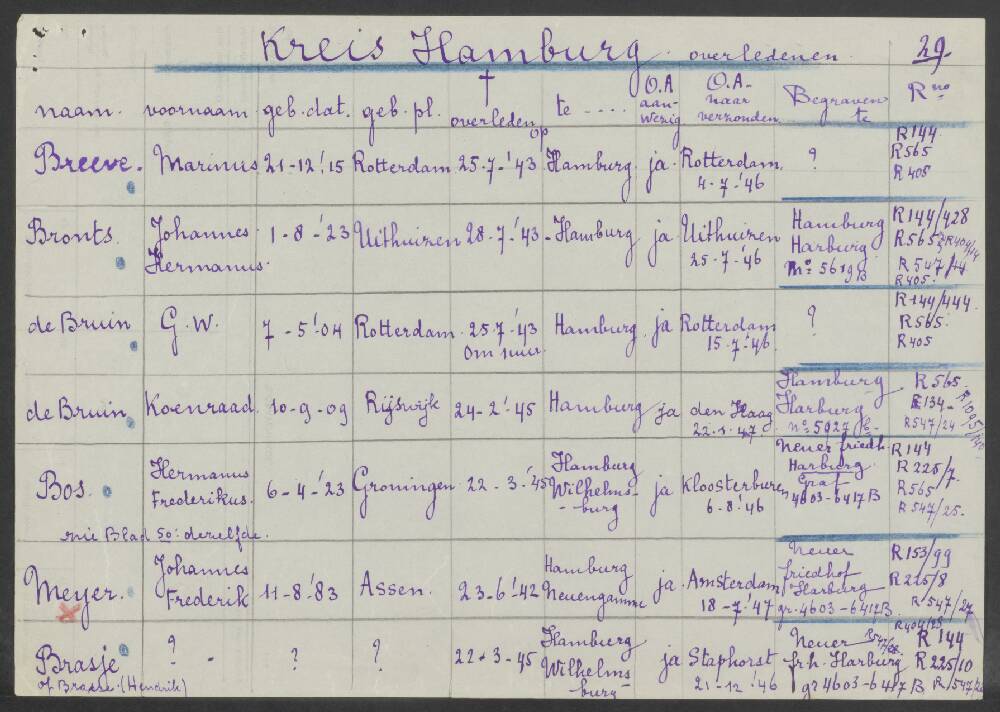 Kreis Hamburg overledenen. 29.
naam. voornaam geb. dat. geb. pl. † overleden op te .... O.A aan-wezig O.A. naar verzonden Begraven te R no
Breeve. Marinus 21-12-'15 Rotterdam 25-7-'43 Hamburg. ja. Rotterdam 4-7-'46 ? R144 R565 R405
Bronts. Johannes Hermanus. 1-8-'23 Uithuizen 28-7-'43 Hamburg ja Uithuizen 25-7-'46 Hamburg Harburg No 5619B R144/428 R565 R547/44 R405.
de Bruin G.W. 7-5-'04 Rotterdam 25-7-'43 Hamburg ja Rotterdam 15-7-'46 ? R144/444. R565. R405
de Bruin Koenraad. 10-9-09 Rijswijk 24-2-'45 Hamburg ja den Haag 22-1-'47. Hamburg Harburg no 5927 R565. R134 R547/24
Bos. Hermanus Frederikus. 6-4-'23 Groningen 22-3-'45 Hamburg Wilhelms-burg ja Kloosterburen 6-8-'46 Neuer friedh. Harburg Graf 4603-6417B R144 R225/7. R565 R547/25.
zie Blad 50: dezelfde.
Meyer. Johannes Frederik 11-8-'83 Assen. 23-6-'42 Hamburg Neuengamme ja. Amsterdam 18-7-'47 Neuer friedhof Harburg gr. 4603-6417B R153/99 R225/8 R547/27
Brasje ? - ? ? 22-3-45 Hamburg Wilhelms-burg ja Staphorst 21-12-'46 Neuer frh. Harburg gr 4603-6417B R404/25 R144 R225/10
of Brasse (Hendrik)